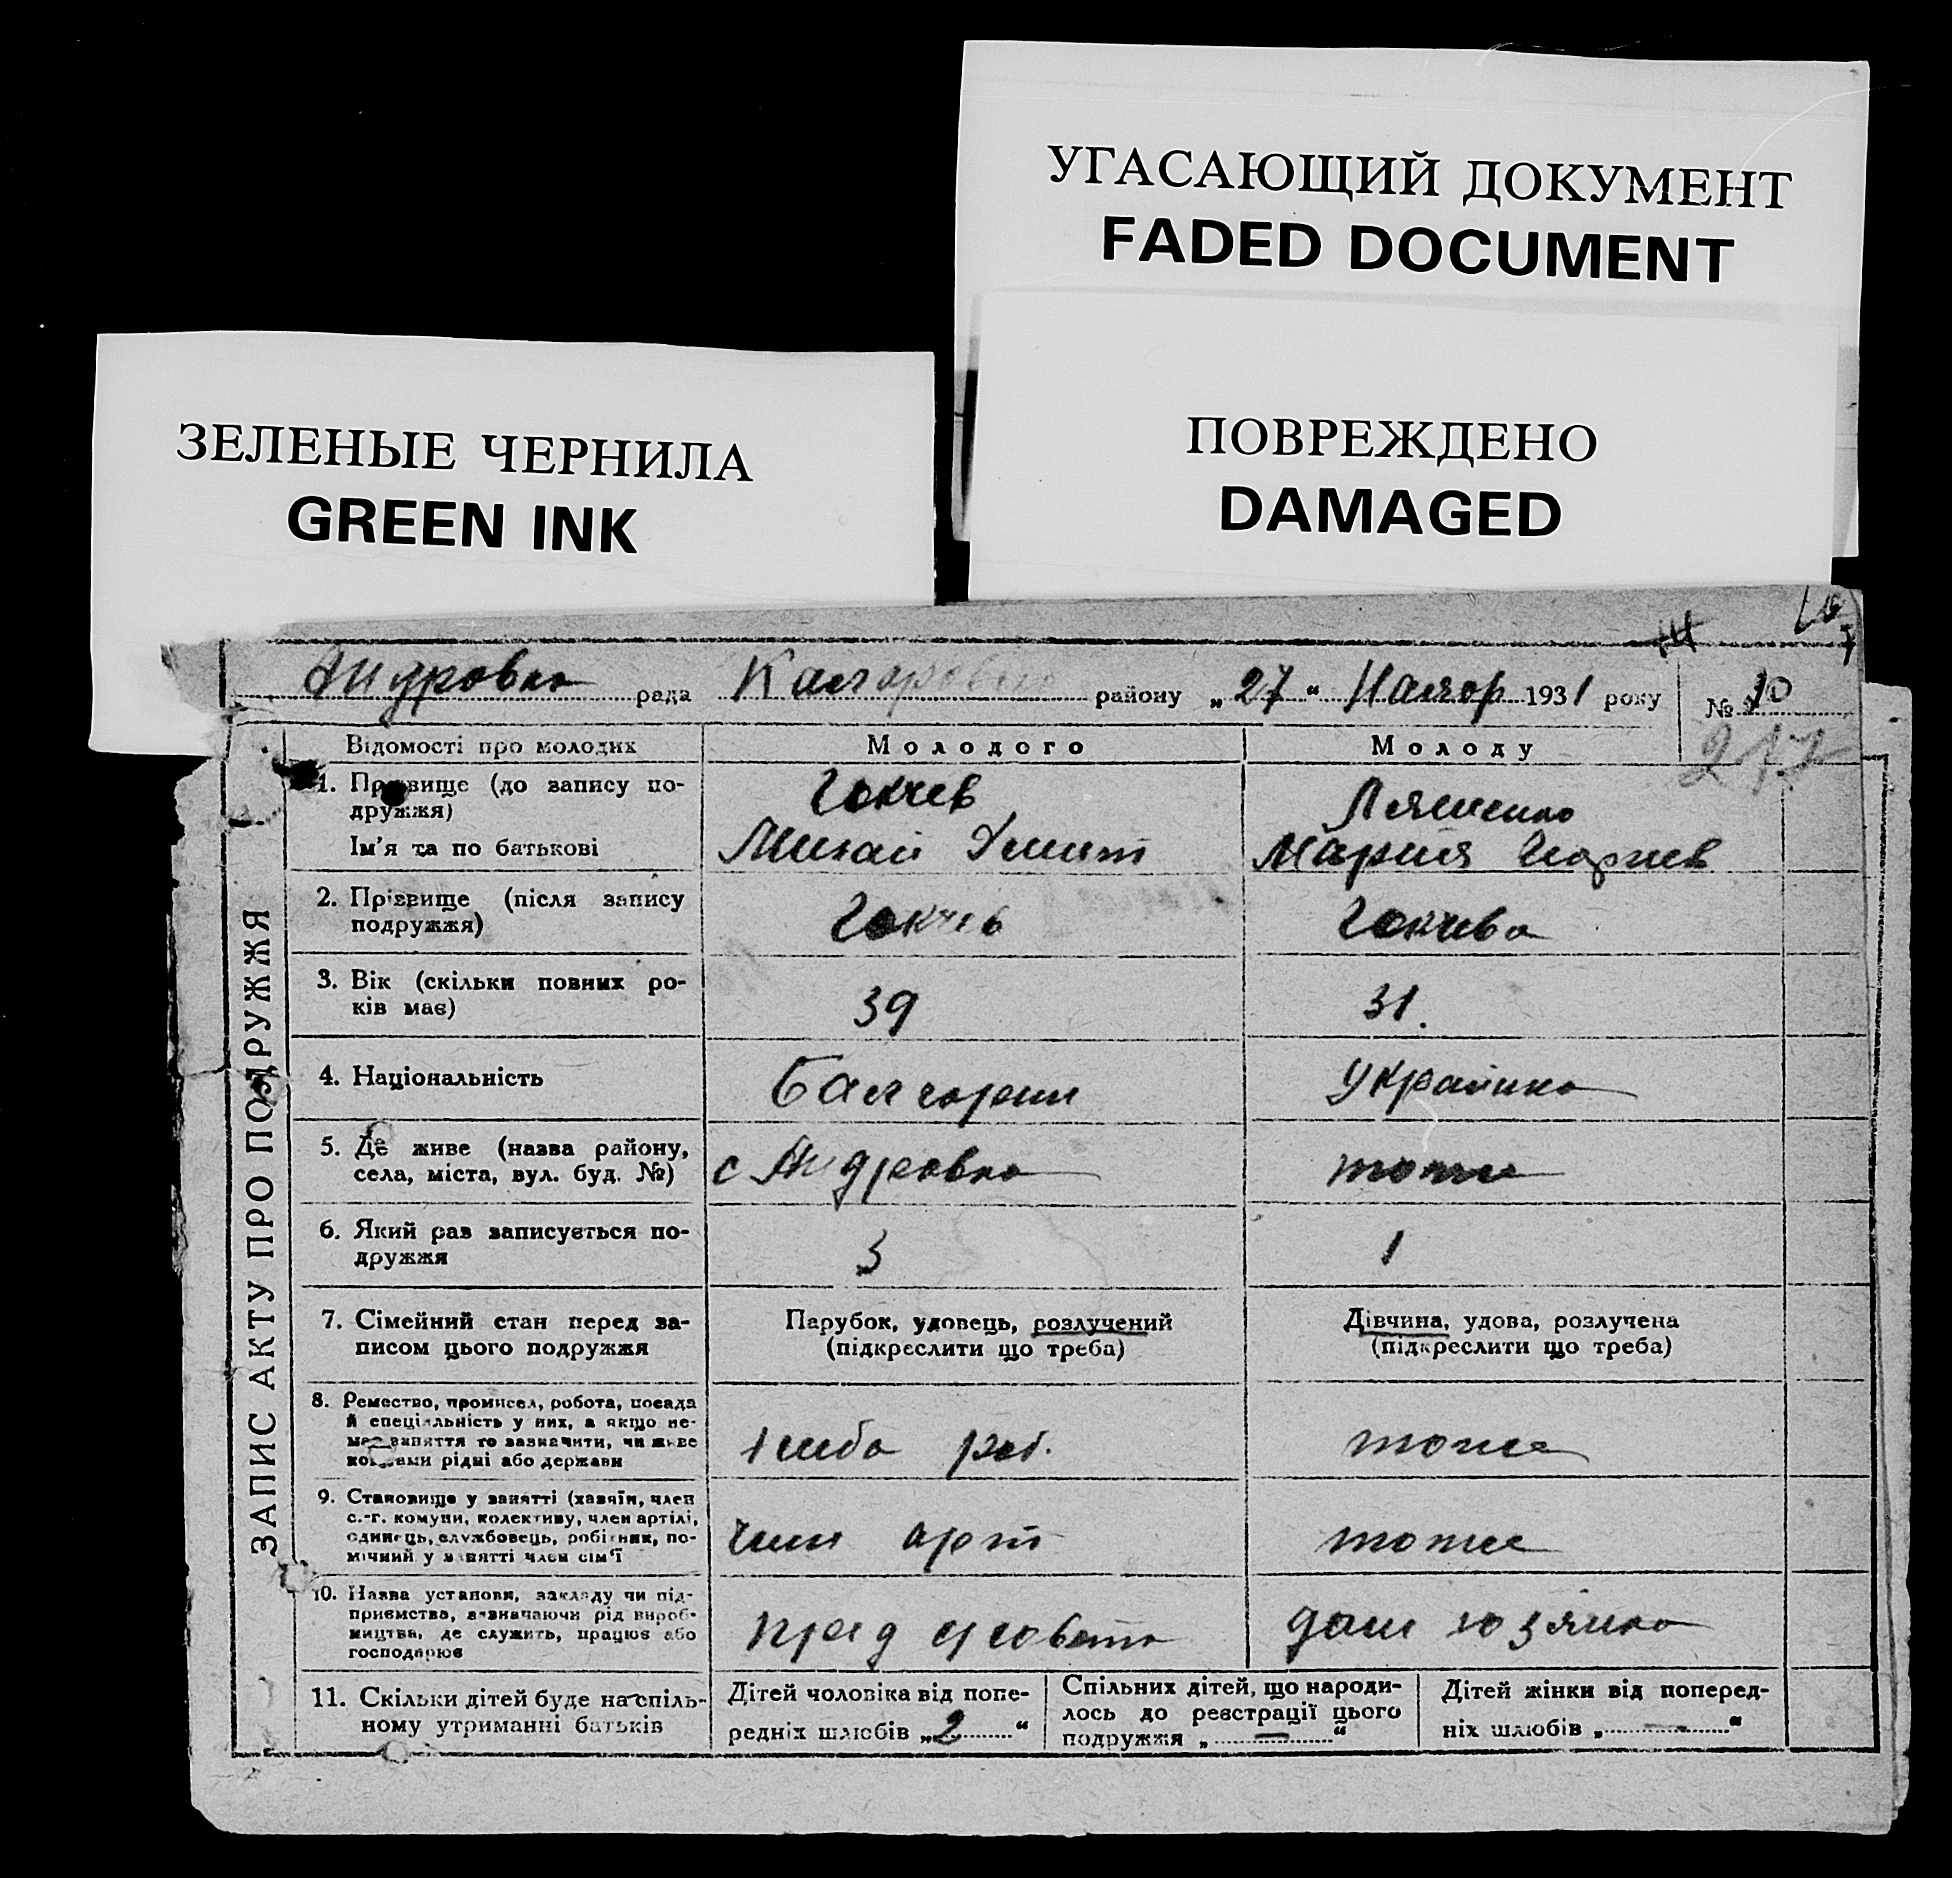 УГАСАЮЩИЙ ДОКУМЕНТ
FADED DOCUMENT
ПОВРЕЖДЕНО
DAMAGED
ЗЕЛЕНЫЕ ЧЕРНИЛА
GREEN INK
рада району „27“ 1931 року № 10
217
ЗАПИС АКТУ ПРО ПОДРУЖЖЯ
Відомості про молодих Молодого Молоду
1. Прізвище (до запису по-
дружжя)
Гокчев Ляшенко
Ім'я та по батькові
Михай Марпия
2. Прізвище (після запису
подружжя)
Гокчев Гокчева
3. Вік (скільки повних ро-
ків має)
39 31.
4. Національність
Балгорин Украинка
5. Де живе (назва району,
села, міста, вул. буд. №)
с тоже
6. Який раз записується по-
дружжя
3 1
7. Сімейний стан перед за-
писом цього подружжя
Парубок, удовець, розлучений
(підкреслити що треба)
Дівчина, удова, розлучена
(підкреслити що треба)
8. Ремество, промисел, робота, посада
й спеціяльність у них, а якщо не-
має заняття то зазначити, чи живе
коштами рідні або держави
тоже
9. Становище у занятті (хазяїн, член
с.-г. комуни, колективу, член артілі,
одинець, службовець, робітник, по-
мічний у занятті член сім'ї
член арт тоже
10. Назва установи, закладу чи під-
приємства, зазначаючи рід вироб-
ництва, де служить, працює або
господарює
пред дом хозяйка
11. Скільки дітей буде на спіль-
ному утриманні батьків
Дітей чоловіка від попе-
редніх шлюбів „2“
Спільних дітей, що народи-
лось до реєстрації цього
подружжя „—“
Дітей жінки від поперед-
ніх шлюбів „—“